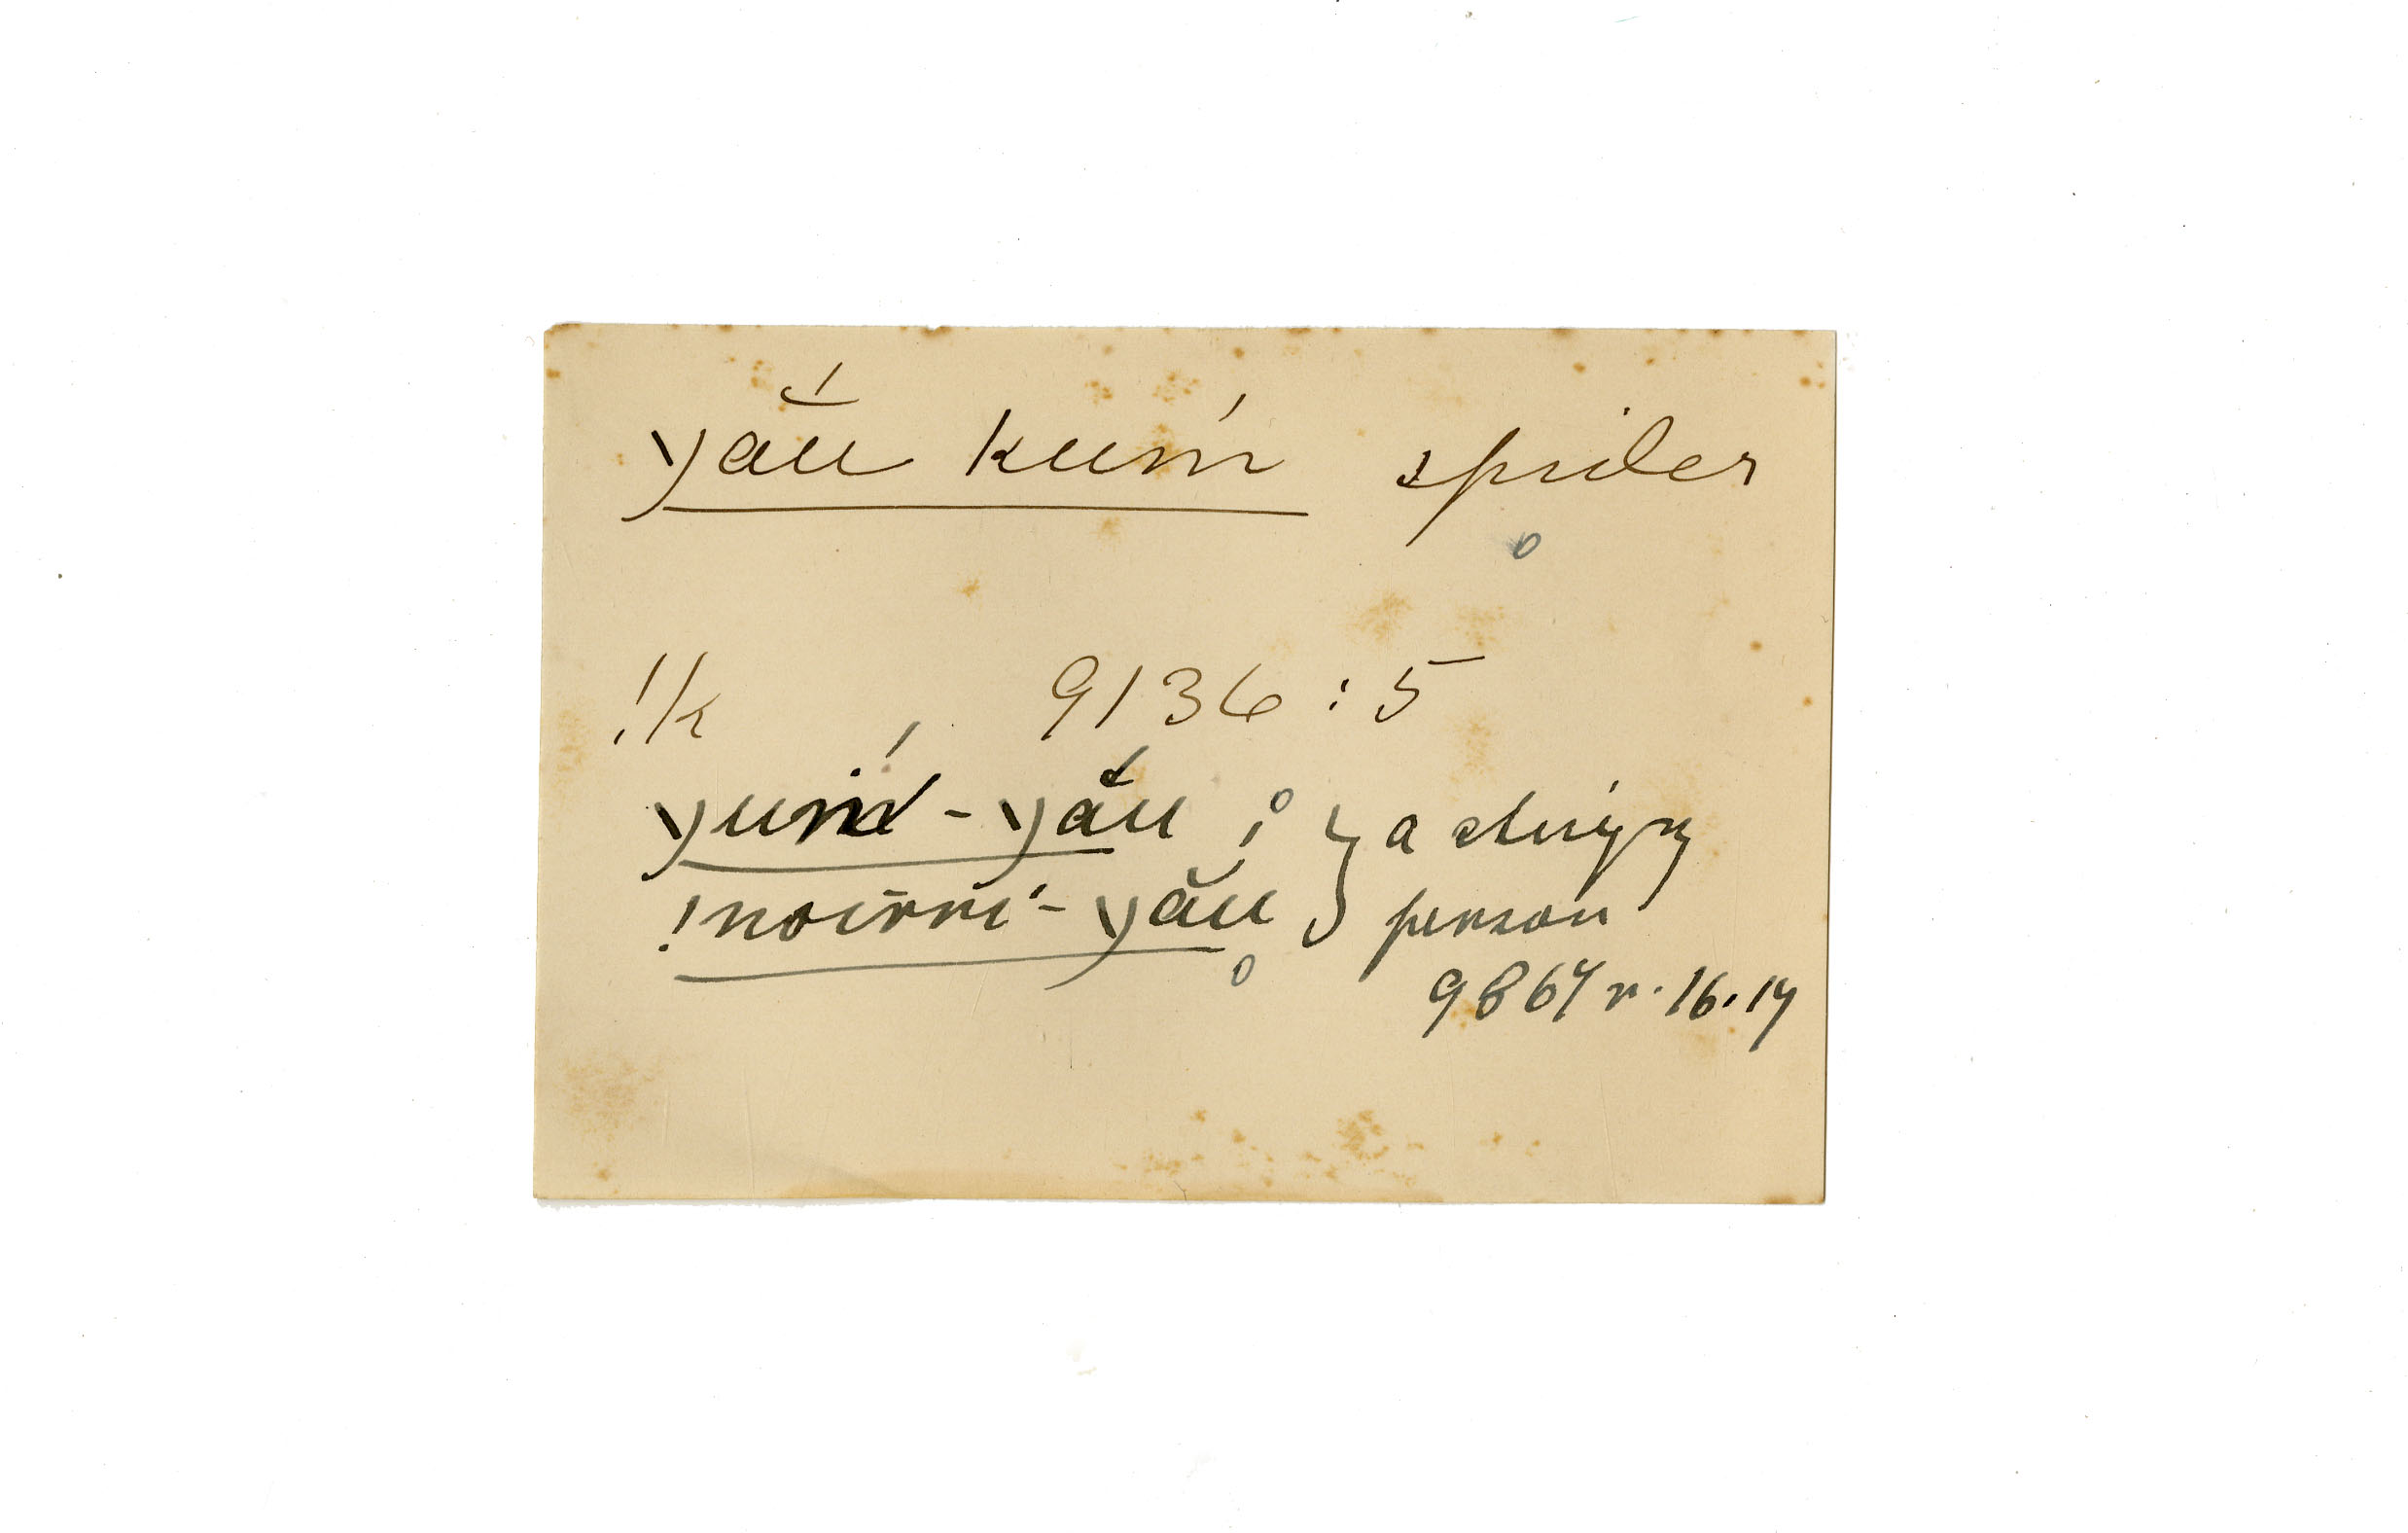 yắu kuḿ spider
!k 9136 : 5
yuḿ - yắu ; } a stingy
!noīrri´ - yắu } person
9867 r. 16. 17